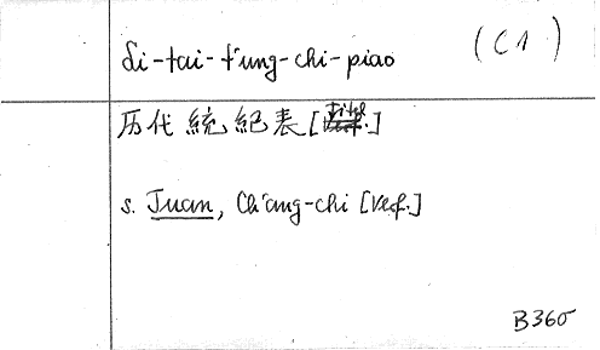 Li-tai-t'ung-chi-piao (C1)
历代統紀表[Titel.]
s. Juan, Ch'ang-chi [Verf.]
B360